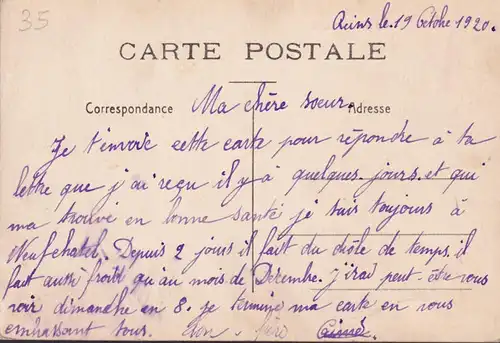 35
Reims le 19 Octobre 1920.
CARTE POSTALE
Correspondance
Adresse
Ma chère soeur.
Je t'envoie cette carte pour répondre à ta
lettre que j'ai reçu il y a quelques jours. et qui
ma trouvé en bonne santé je suis toujours à
Neufchatel. Depuis 2 jours il fait du drôle de temps. il
fait aussi froid qu'au mois de Décembre. J'irai peut être vous
voir dimanche en 8. je termine ma carte en vous
embrassant tous. ton frère Aimé.